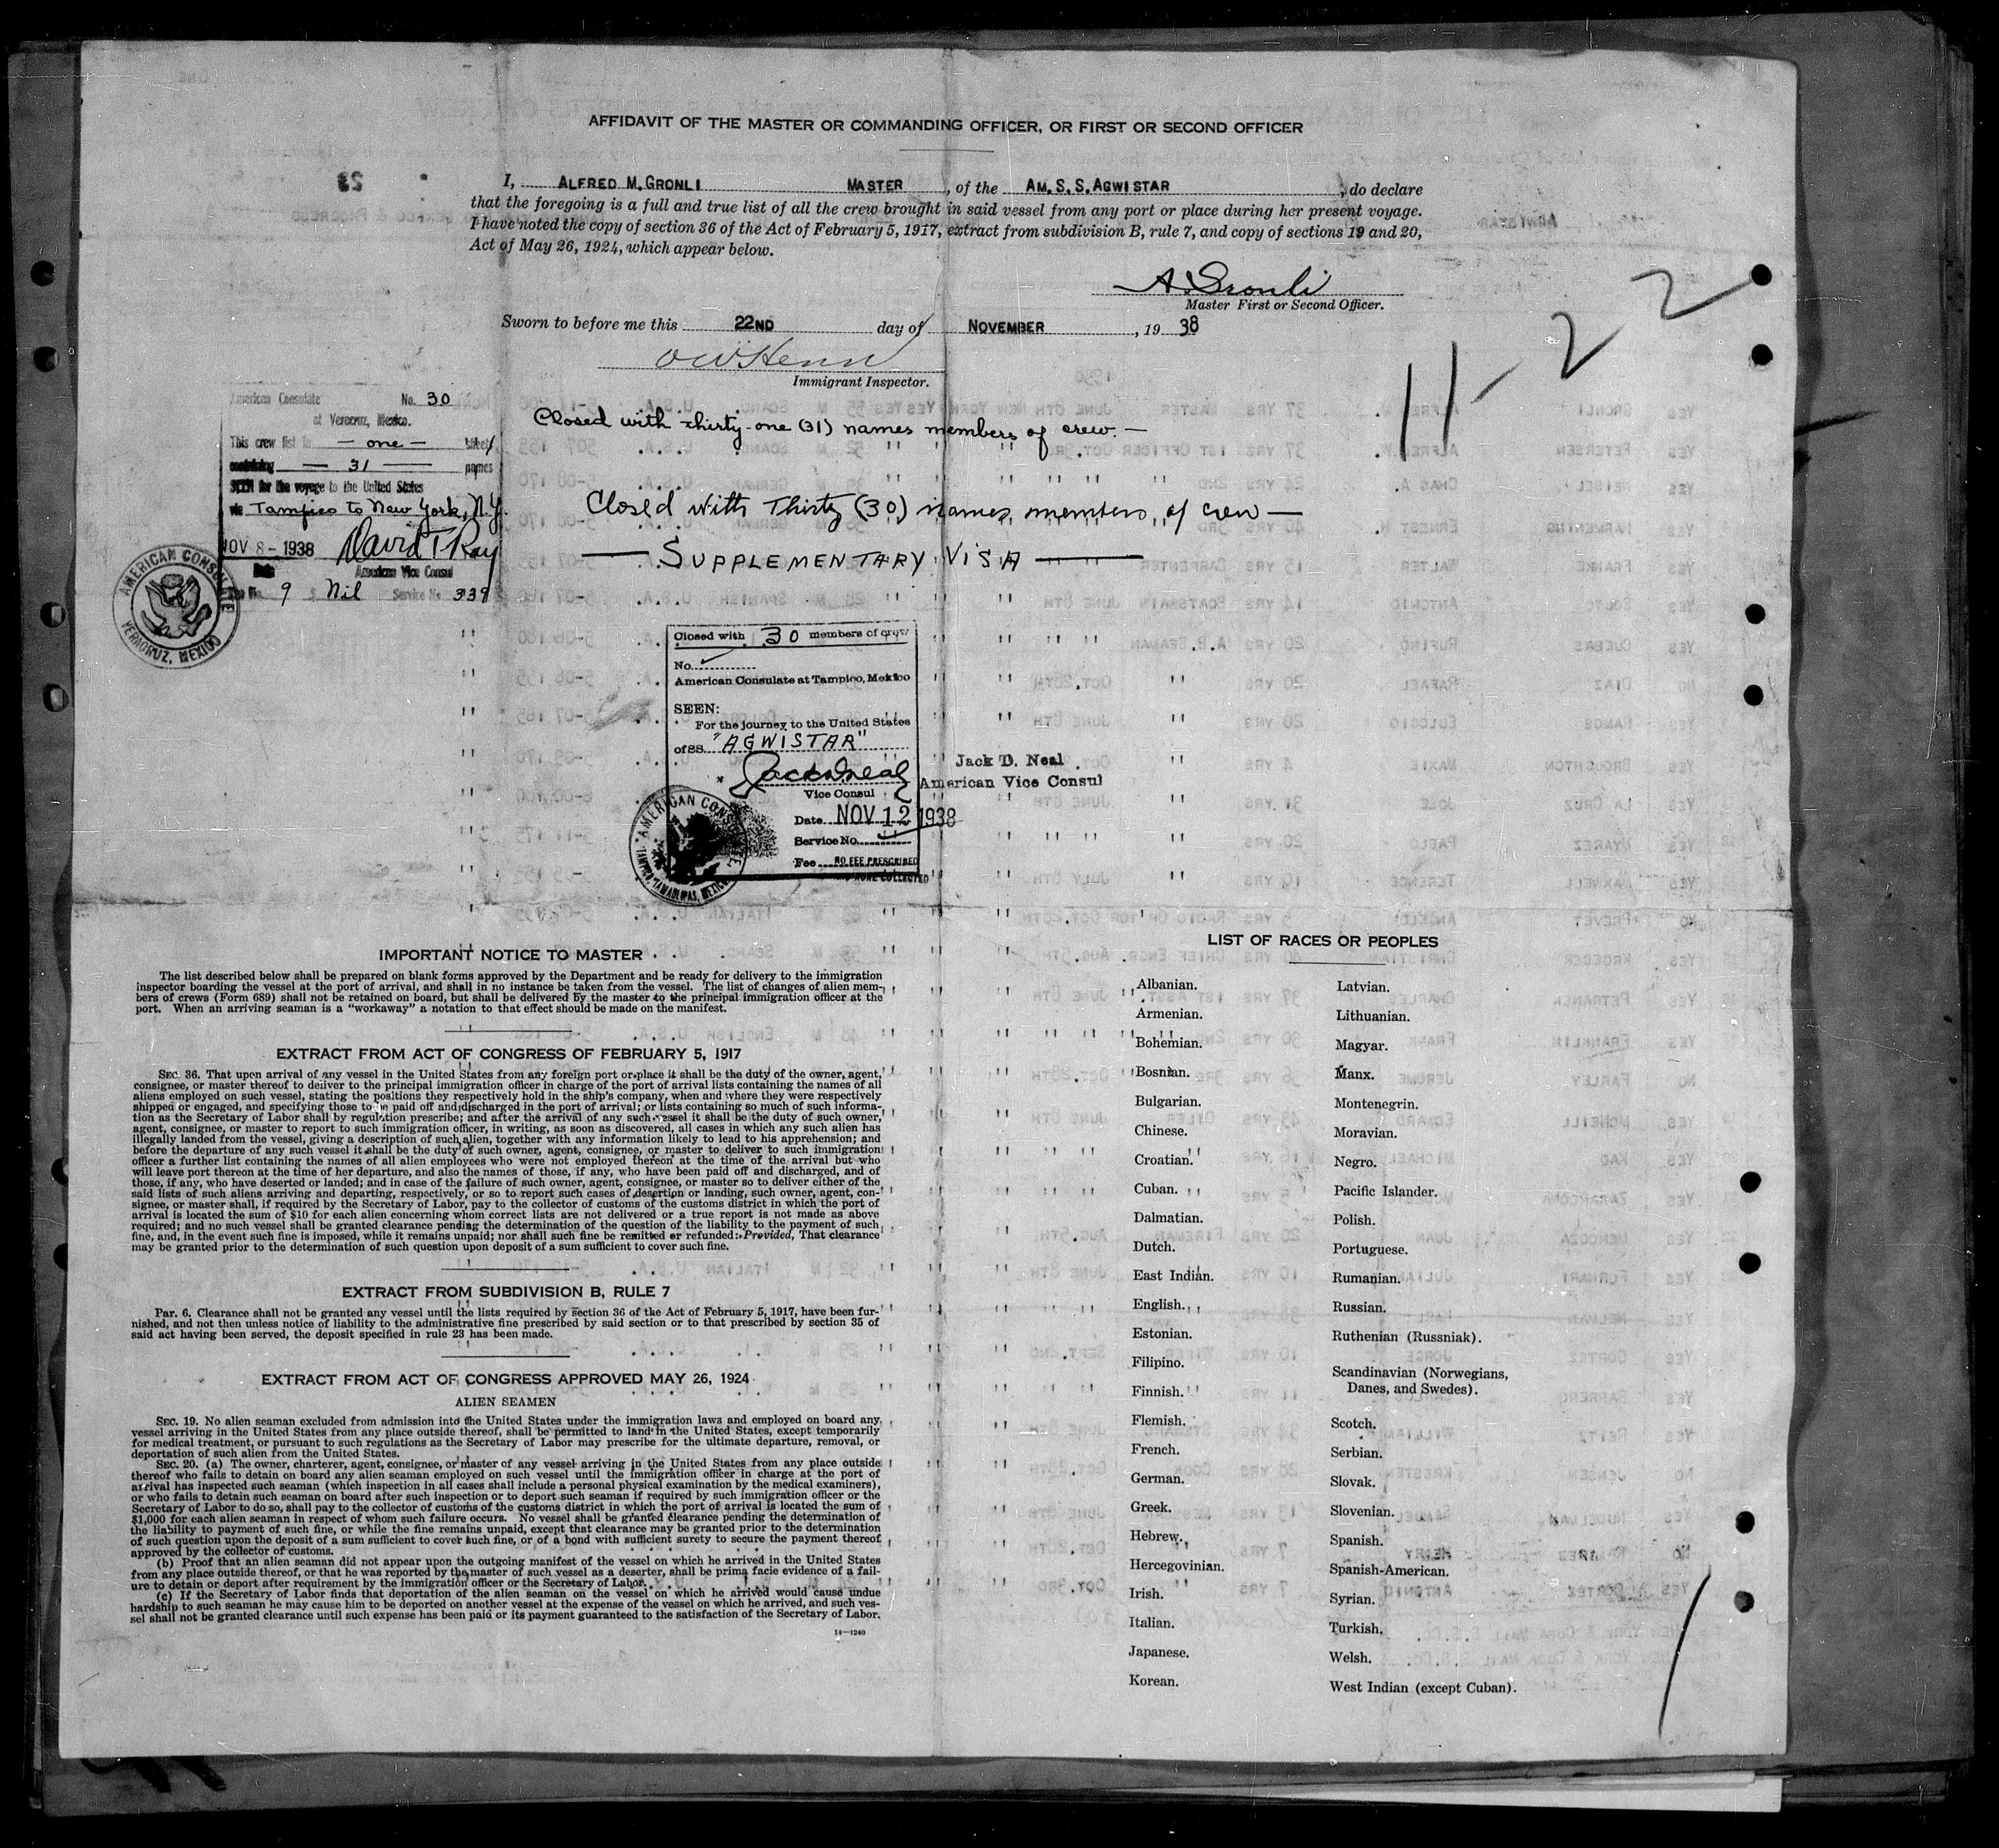 AFFIDAVIT OF THE MASTER OR COMMANDING OFFICER, OR FIRST OR SECOND OFFICER
I, ALFRED M. GRONLI MASTER, of the AM. S. S. AGWISTAR, do declare
that the foregoing is a full and true list of all the crew brought in said vessel from any port or place during her present voyage.
I have noted the copy of section 36 of the Act of February 5, 1917, extract from subdivision B, rule 7, and copy of sections 19 and 20,
Act of May 26, 1924, which appear below.
A. Gronli
Master First or Second Officer.
Sworn to before me this 22ND day of NOVEMBER, 19 38
Immigrant Inspector.
11-22
American Consulate No. 30
at Veracruz, Mexico.
This crew list in — one — sheet
containing — 31 — names
SEEN for the voyage to the United States
via Tampico to New York, N.Y.
NOV 8 - 1938 David T Ray
Date American Vice Consul
9 $ Nil Service No. 339
AMERICAN CONSULATE
VERACRUZ, MEXICO
Closed with thirty-one (31) names members of crew. —
Closed with Thirty (30) names members of crew —
— SUPPLEMENTARY VISA —
Closed with 30 members of crew
No.
American Consulate at Tampico, Mexico
SEEN:
For the journey to the United States
of SS. "AGWISTAR"
Jack D Neal
Jack D. Neal
Vice Consul
American Vice Consul
Date NOV 12 1938
Service No.
Fee NO FEE PRESCRIBED
AND NONE COLLECTED
AMERICAN CONSULATE
TAMPICO, TAMAULIPAS, MEXICO
IMPORTANT NOTICE TO MASTER
The list described below shall be prepared on blank forms approved by the Department and be ready for delivery to the immigration
inspector boarding the vessel at the port of arrival, and shall in no instance be taken from the vessel. The list of changes of alien mem-
bers of crews (Form 689) shall not be retained on board, but shall be delivered by the master to the principal immigration officer at the
port. When an arriving seaman is a "workaway" a notation to that effect should be made on the manifest.
EXTRACT FROM ACT OF CONGRESS OF FEBRUARY 5, 1917
SEC. 36. That upon arrival of any vessel in the United States from any foreign port or place it shall be the duty of the owner, agent,
consignee, or master thereof to deliver to the principal immigration officer in charge of the port of arrival lists containing the names of all
aliens employed on such vessel, stating the positions they respectively hold in the ship's company, when and where they were respectively
shipped or engaged, and specifying those to be paid off and discharged in the port of arrival; or lists containing so much of such informa-
tion as the Secretary of Labor shall by regulation prescribe; and after the arrival of any such vessel it shall be the duty of such owner,
agent, consignee, or master to report to such immigration officer, in writing, as soon as discovered, all cases in which any such alien has
illegally landed from the vessel, giving a description of such alien, together with any information likely to lead to his apprehension; and
before the departure of any such vessel it shall be the duty of such owner, agent, consignee, or master to deliver to such immigration
officer a further list containing the names of all alien employees who were not employed thereon at the time of the arrival but who
will leave port thereon at the time of her departure, and also the names of those, if any, who have been paid off and discharged, and of
those, if any, who have deserted or landed; and in case of the failure of such owner, agent, consignee, or master so to deliver either of the
said lists of such aliens arriving and departing, respectively, or so to report such cases of desertion or landing, such owner, agent, con-
signee, or master shall, if required by the Secretary of Labor, pay to the collector of customs of the customs district in which the port of
arrival is located the sum of $10 for each alien concerning whom correct lists are not delivered or a true report is not made as above
required; and no such vessel shall be granted clearance pending the determination of the question of the liability to the payment of such
fine, and, in the event such fine is imposed, while it remains unpaid; nor shall such fine be remitted or refunded: Provided, That clearance
may be granted prior to the determination of such question upon deposit of a sum sufficient to cover such fine.
EXTRACT FROM SUBDIVISION B, RULE 7
Par. 6. Clearance shall not be granted any vessel until the lists required by section 36 of the Act of February 5, 1917, have been fur-
nished, and not then unless notice of liability to the administrative fine prescribed by said section or to that prescribed by section 35 of
said act having been served, the deposit specified in rule 23 has been made.
EXTRACT FROM ACT OF CONGRESS APPROVED MAY 26, 1924
ALIEN SEAMEN
SEC. 19. No alien seaman excluded from admission into the United States under the immigration laws and employed on board any
vessel arriving in the United States from any place outside thereof, shall be permitted to land in the United States, except temporarily
for medical treatment, or pursuant to such regulations as the Secretary of Labor may prescribe for the ultimate departure, removal, or
deportation of such alien from the United States.
SEC. 20. (a) The owner, charterer, agent, consignee, or master of any vessel arriving in the United States from any place outside
thereof who fails to detain on board any alien seaman employed on such vessel until the immigration officer in charge at the port of
arrival has inspected such seaman (which inspection in all cases shall include a personal physical examination by the medical examiners),
or who fails to detain such seaman on board after such inspection or to deport such seaman if required by such immigration officer or the
Secretary of Labor to do so, shall pay to the collector of customs of the customs district in which the port of arrival is located the sum of
$1,000 for each alien seaman in respect of whom such failure occurs. No vessel shall be granted clearance pending the determination of
the liability to payment of such fine, or while the fine remains unpaid, except that clearance may be granted prior to the determination
of such question upon the deposit of a sum sufficient to cover such fine, or of a bond with sufficient surety to secure the payment thereof
approved by the collector of customs.
(b) Proof that an alien seaman did not appear upon the outgoing manifest of the vessel on which he arrived in the United States
from any place outside thereof, or that he was reported by the master of such vessel as a deserter, shall be prima facie evidence of a fail-
ure to detain or deport after requirement by the immigration officer or the Secretary of Labor.
(c) If the Secretary of Labor finds that deportation of the alien seaman on the vessel on which he arrived would cause undue
hardship to such seaman he may cause him to be deported on another vessel at the expense of the vessel on which he arrived, and such ves-
sel shall not be granted clearance until such expense has been paid or its payment guaranteed to the satisfaction of the Secretary of Labor.
14—1240
LIST OF RACES OR PEOPLES
Albanian.
Armenian.
Bohemian.
Bosnian.
Bulgarian.
Chinese.
Croatian.
Cuban.
Dalmatian.
Dutch.
East Indian.
English.
Estonian.
Filipino.
Finnish.
Flemish.
French.
German.
Greek.
Hebrew.
Hercegovinian.
Irish.
Italian.
Japanese.
Korean.
Latvian.
Lithuanian.
Magyar.
Manx.
Montenegrin.
Moravian.
Negro.
Pacific Islander.
Polish.
Portuguese.
Rumanian.
Russian.
Ruthenian (Russniak).
Scandinavian (Norwegians,
Danes, and Swedes).
Scotch.
Serbian.
Slovak.
Slovenian.
Spanish.
Spanish-American.
Syrian.
Turkish.
Welsh.
West Indian (except Cuban).